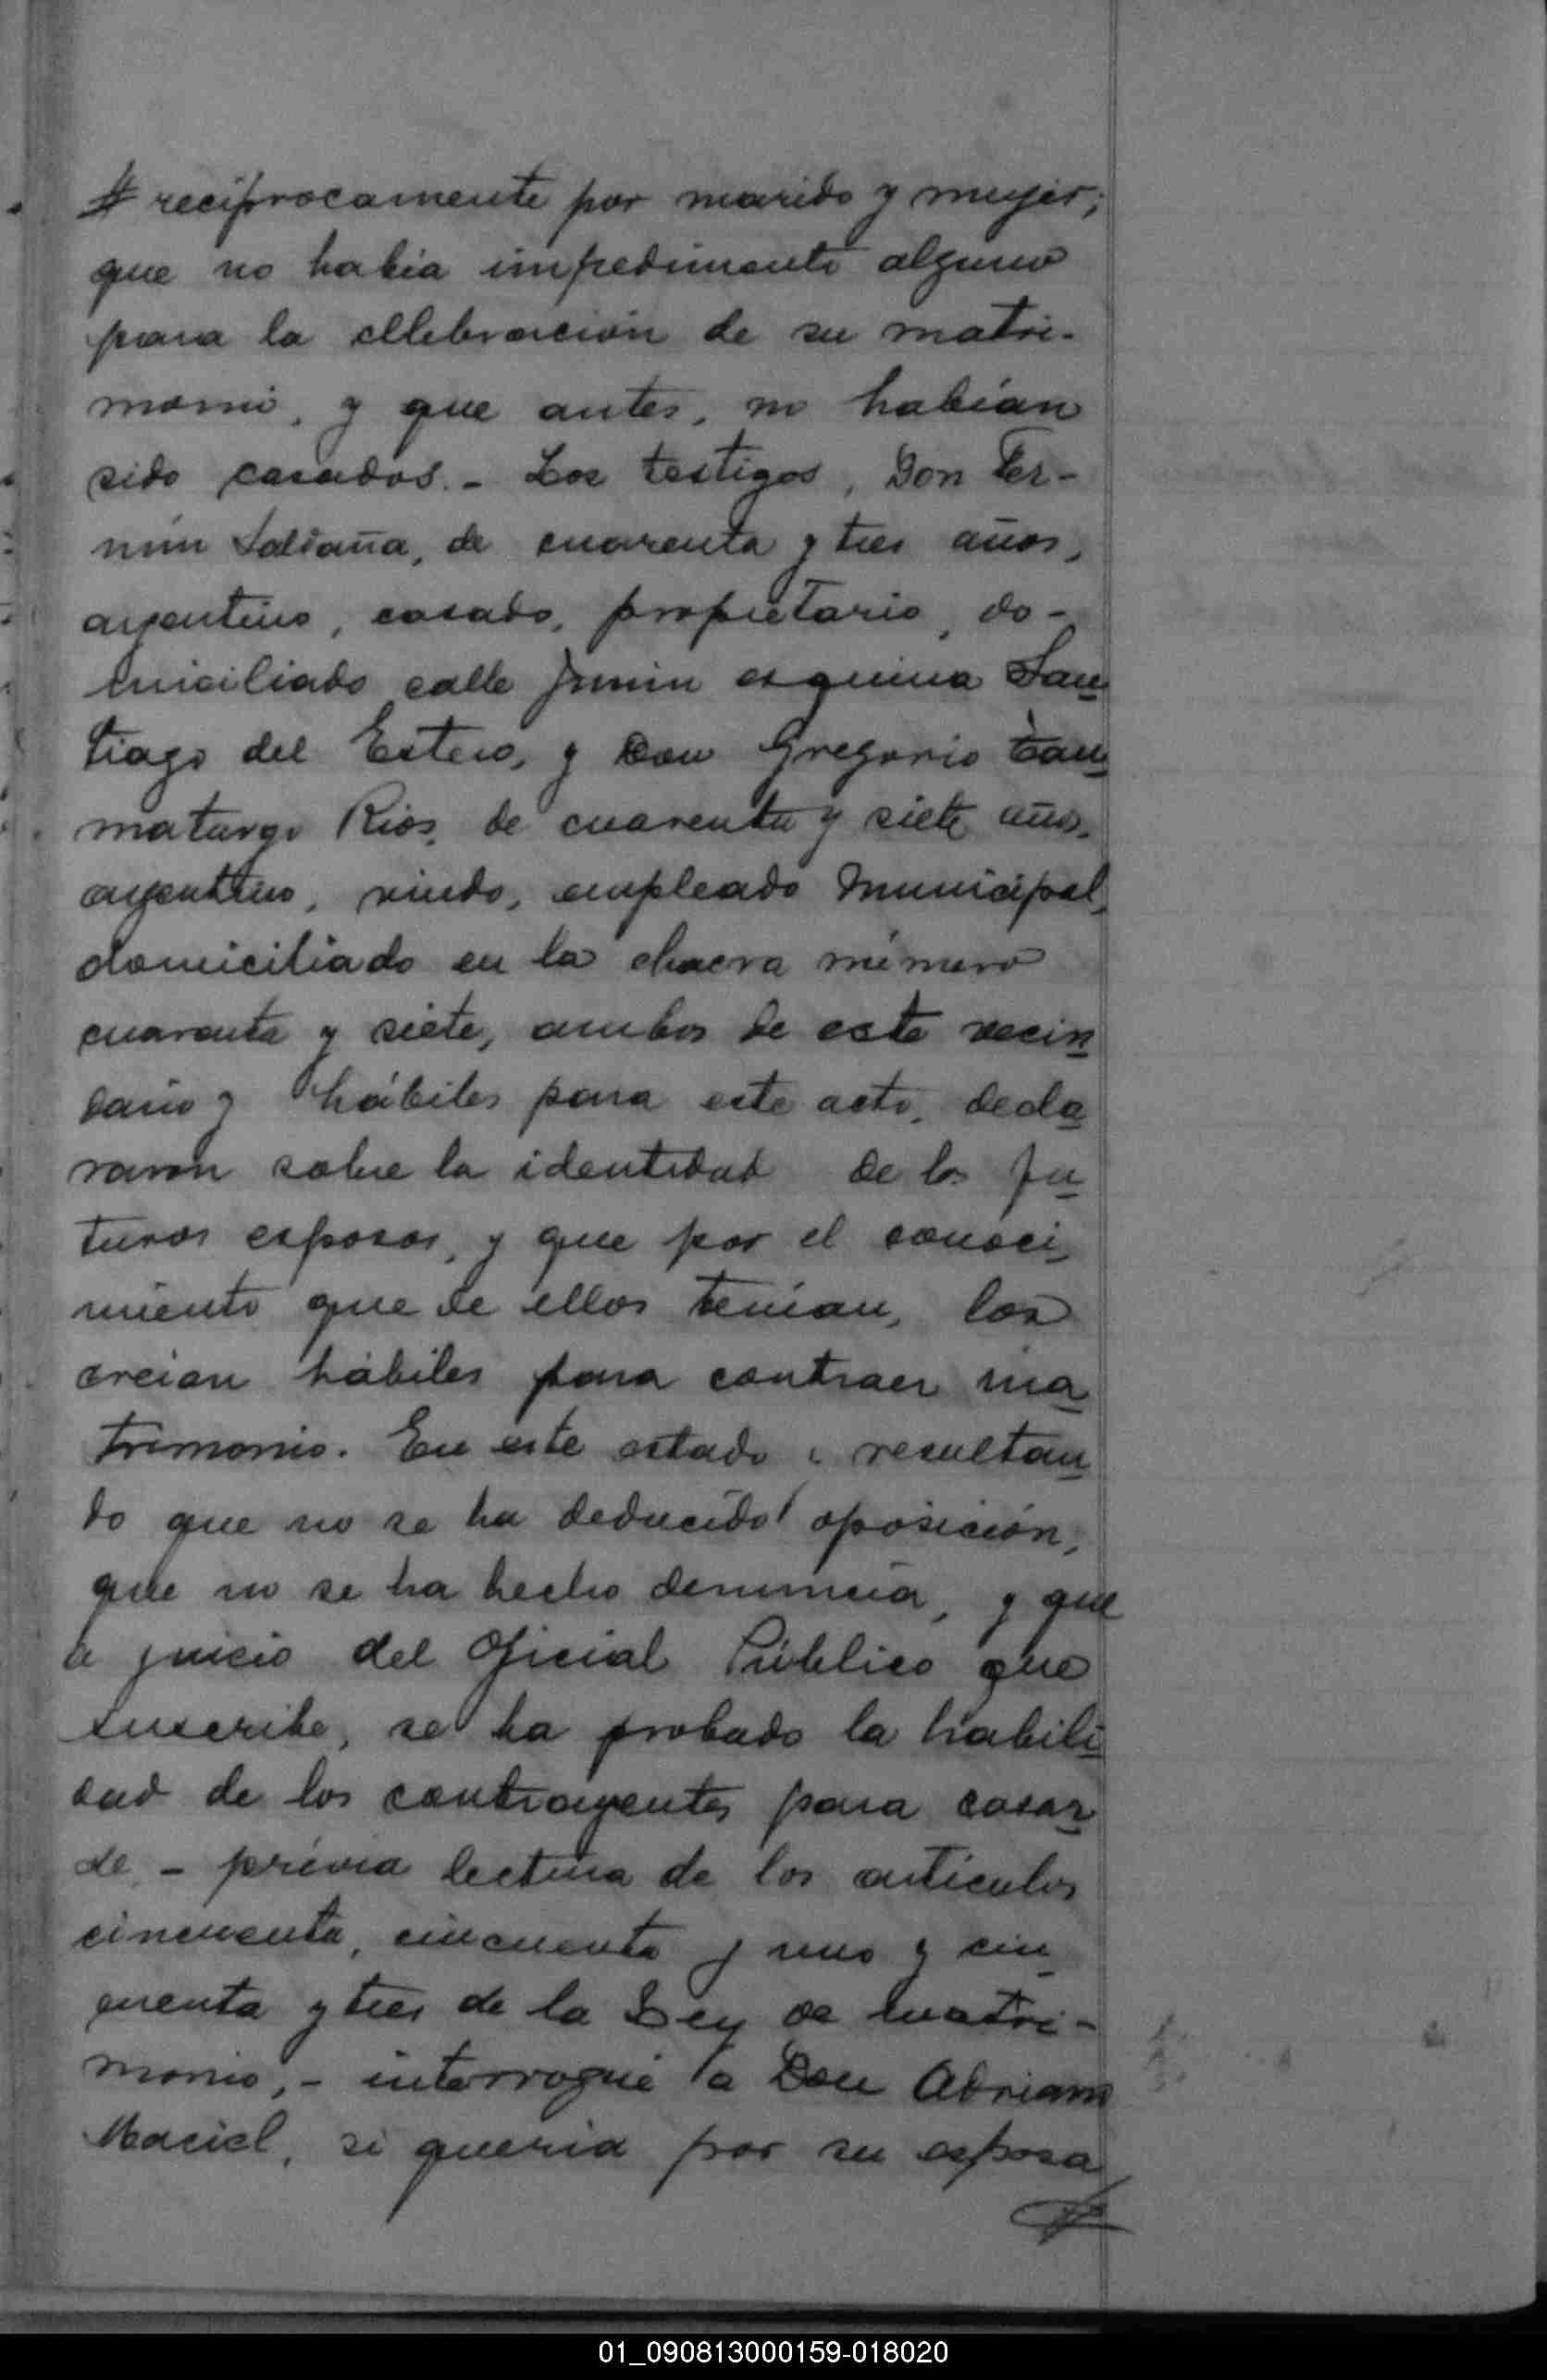 # recíprocamente por marido y mujer;
que no había impedimento alguno
para la cllebración de su matri-
monio, y que antes, no habían
sido casados. - Los testigos, Don Fer-
mín Saldaña, de cuarenta y tres años,
argentino, casado, propietario, do-
miciliado calle Junin esquina San
tiago del Estero, y Don Gregorio Tau
maturgo Rios, de cuarenta y siete años,
argentino, viudo, empleado Municipal,
domiciliado en la chacra número
cuarenta y siete, ambos de este vecin
dario y hábiles para este acto, decla
raron sobre la identidad de los fu
turos esposos, y que por el conoci
miento que de ellos tenían, los
creian hábiles para contraer ma
trimonio. En este estado i resultan
do que no se ha deducido oposición,
que no se ha hecho denuncia, y que
a juicio del Oficial Público que
suscribe, se ha probado la habili
dad de los contrayentes para casar
se, - prévia lectura de los artículos
cincuenta, cincuenta y uno y cin
cuenta y tres de la Ley de Matri-
monio, - interrogué a Don Adriano
Maciel, si queria por su esposa
01_090813000159-018020